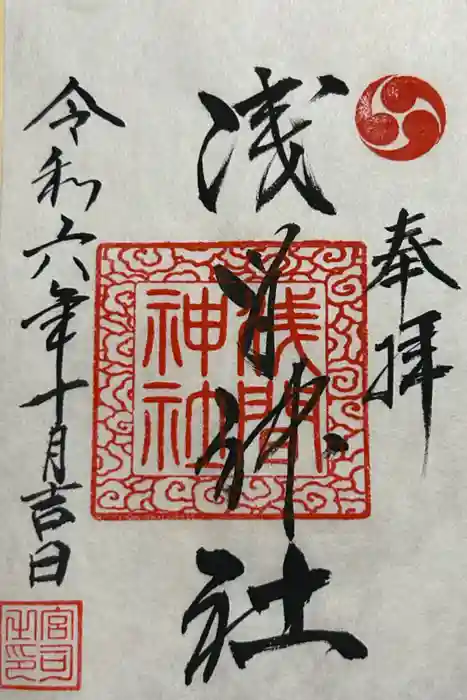 奉拝
浅间神社
浅間
神社
令和六年十月吉日
宮司
之印